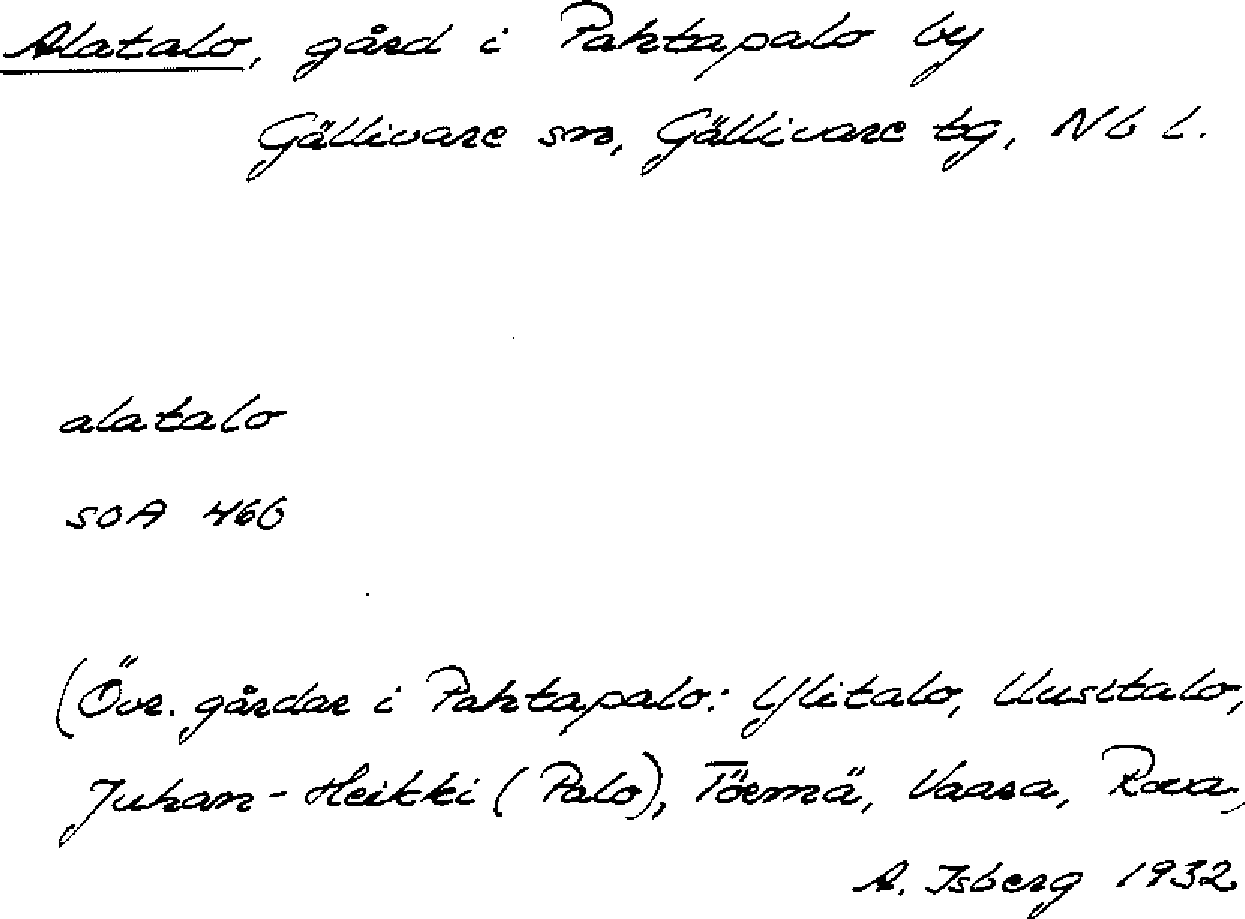 Alatalo, gård i Pahtapalo by
Gällivare sn, Gällivare tg, Nb l.
alatalo
SOA 466
(Övr. gårdar i Pahtapalo: Ylitalo, Uusitalo,
Juhan-Heikki (Palo), Törmä, Vaara, Rova,
A. Isberg 1932